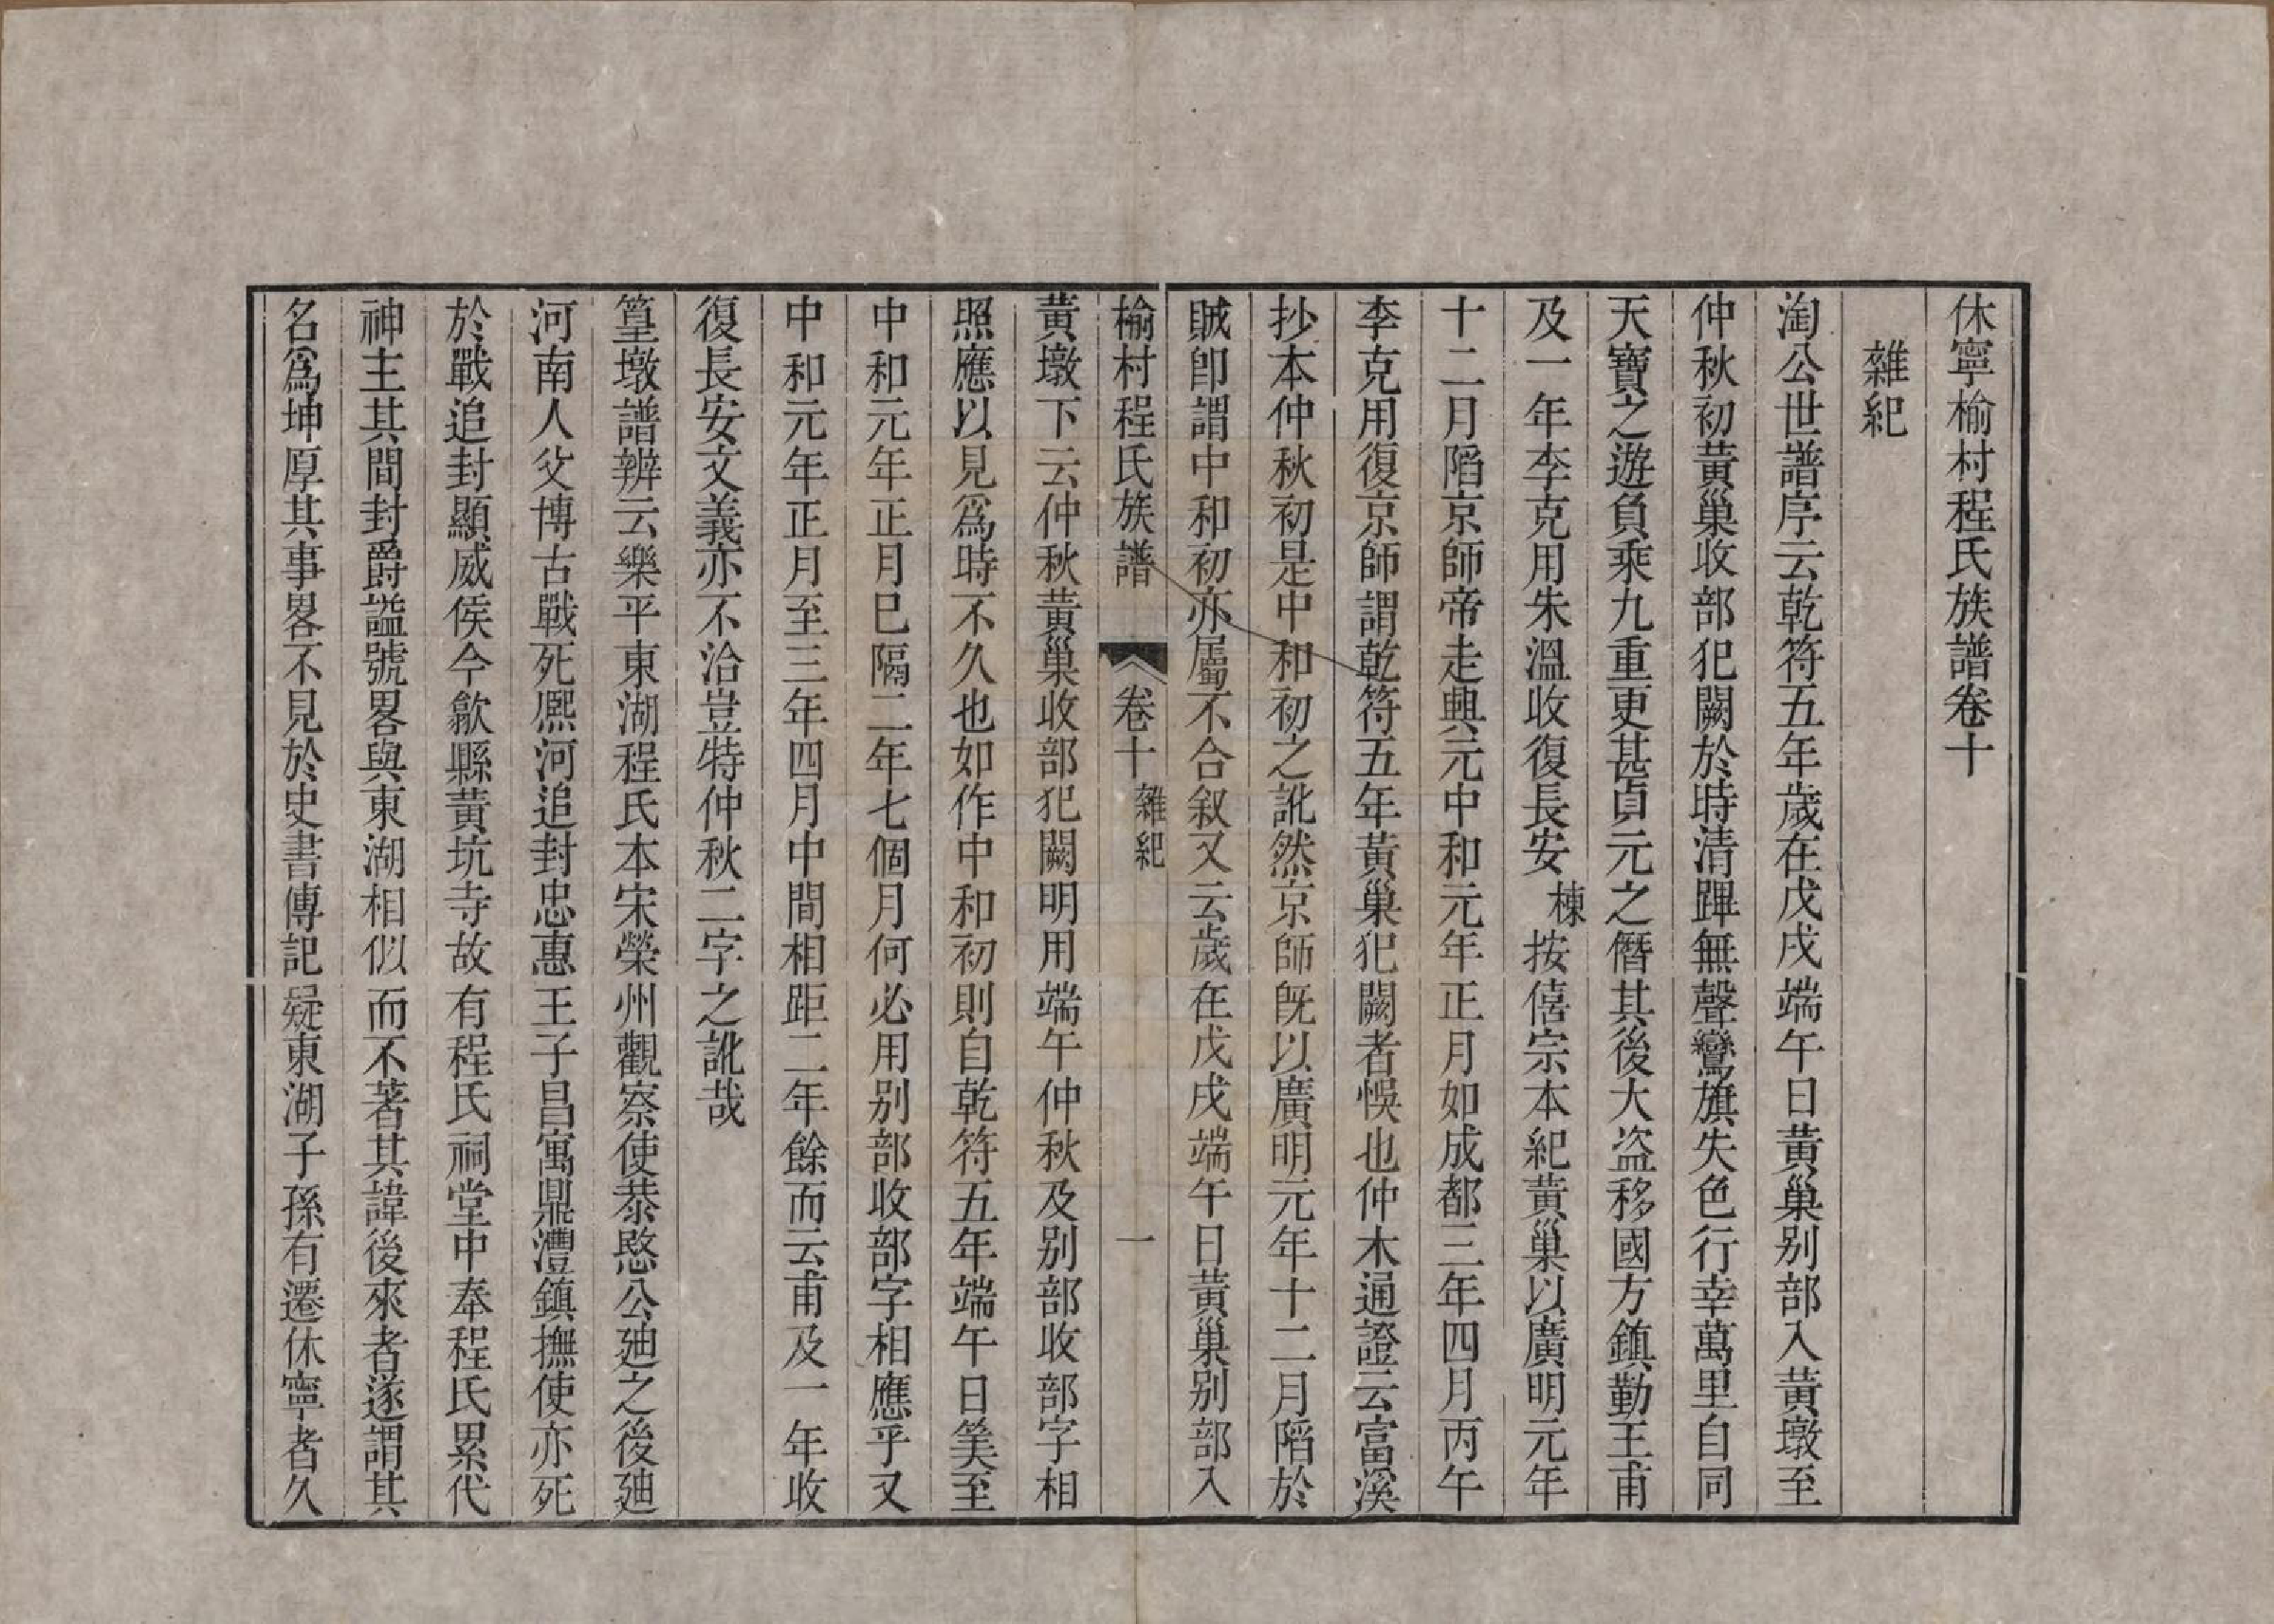 休寧榆村程氏族譜卷十
雜紀
淘公世譜序云乾符五年歲在戊戌端午日黃巢别部入黃墩至
仲秋初黃巢收部犯闕於時清蹕無聲鸞旗失色行幸萬里自同
天寶之遊負乘九重更甚貞元之僭其後大盜移國方鎮勤王甫
及一年李克用朱溫收復長安棟按僖宗本紀黃巢以廣明元年
十二月陷京師帝走興元中和元年正月如成都三年四月丙午
李克用復京師謂乾符五年黃巢犯闕者悞也仲木通證云富溪
抄本仲秋初是中和初之訛然京師旣以廣明元年十二月陷於
賊卽謂中和初亦屬不合叙又云歲在戊戌端午日黃巢别部入
榆村程氏族譜 卷十 雜紀 一
黃墩下云仲秋黃巢收部犯闕明用端午仲秋及别部收部字相
照應以見爲時不久也如作中和初則自乾符五年端午日筭至
中和元年正月巳隔二年七個月何必用别部收部字相應乎又
中和元年正月至三年四月中間相距二年餘而云甫及一年收
復長安文義亦不洽豈特仲秋二字之訛哉
篁墩譜辨云樂平東湖程氏本宋榮州觀察使恭愍公廸之後廸
河南人父博古戰死凞河追封忠惠王子昌寓鼎澧鎮撫使亦死
於戰追封顯威侯今歙縣黃坑寺故有程氏祠堂中奉程氏累代
神主其間封爵謚號畧與東湖相似而不著其諱後來者遂謂其
名爲坤厚其事畧不見於史書傳記疑東湖子孫有遷休寧者久